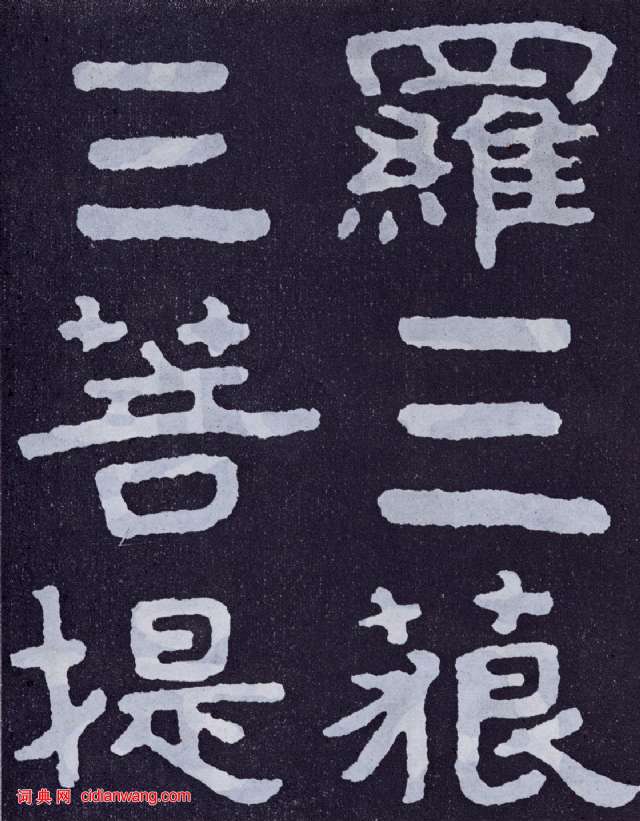 羅三藐
三菩提
词典网 cidianwang.com